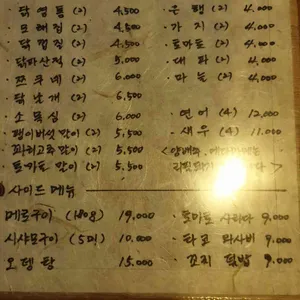 · 닭염통 (2) 4,500
· 모래집 (2) 4,500
· 닭껍질 (2) 4,500
· 닭마산적 (2) 5,000
· 쯔쿠네 (2) 6,000
· 닭날개 (2) 6,500
· 소등심 6,500
· 팽이버섯 말이 (2) 5,500
· 꽈리고추 말이 (2) 5,500
· 토마토 말이 (2) 5,500
· 은행 (2) 4,000
· 가지 (2) 4,000
· 토마토 (2) 4,000
· 대파 (2) 4,000
· 마늘 (2) 4,000
· 연어 (4) 12,000
· 새우 (4) 11,000
< 양배추,
리필
사이드 메뉴
메로구이 (180g) 19,000
시샤모구이 (5미) 10,000
오뎅탕 15,000
· 토마토 사라다 9,000
· 타코 와사비 9,000
· 꼬치 덮밥 9,000